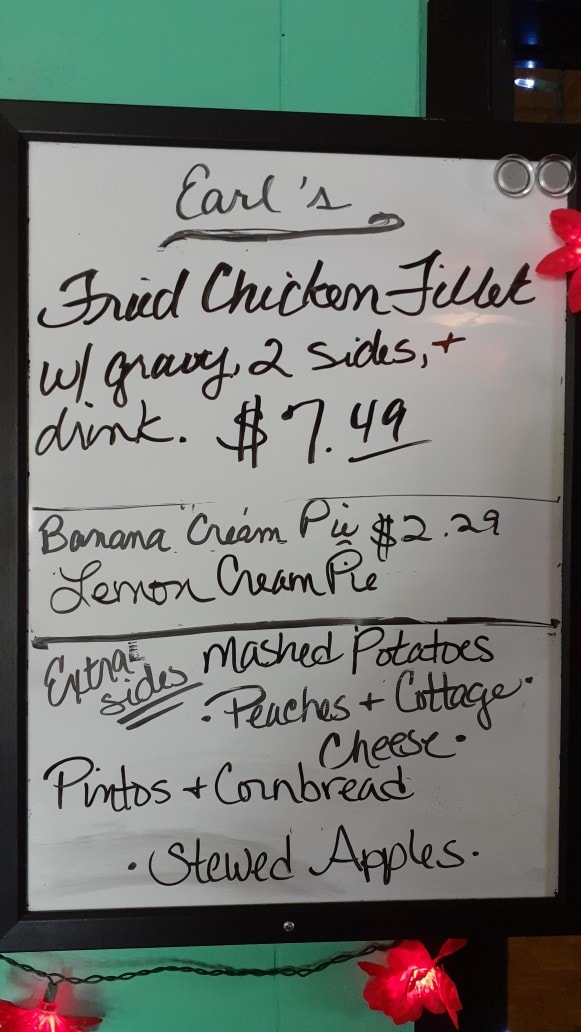 Earl's
Fried Chicken Fillet
w/ gravy, 2 sides, +
drink. $7.49
Banana Cream Pie $2.29
Lemon Cream Pie
Extra sides
Mashed Potatoes
• Peaches + Cottage •
Cheese •
Pintos + Cornbread
• Stewed Apples •